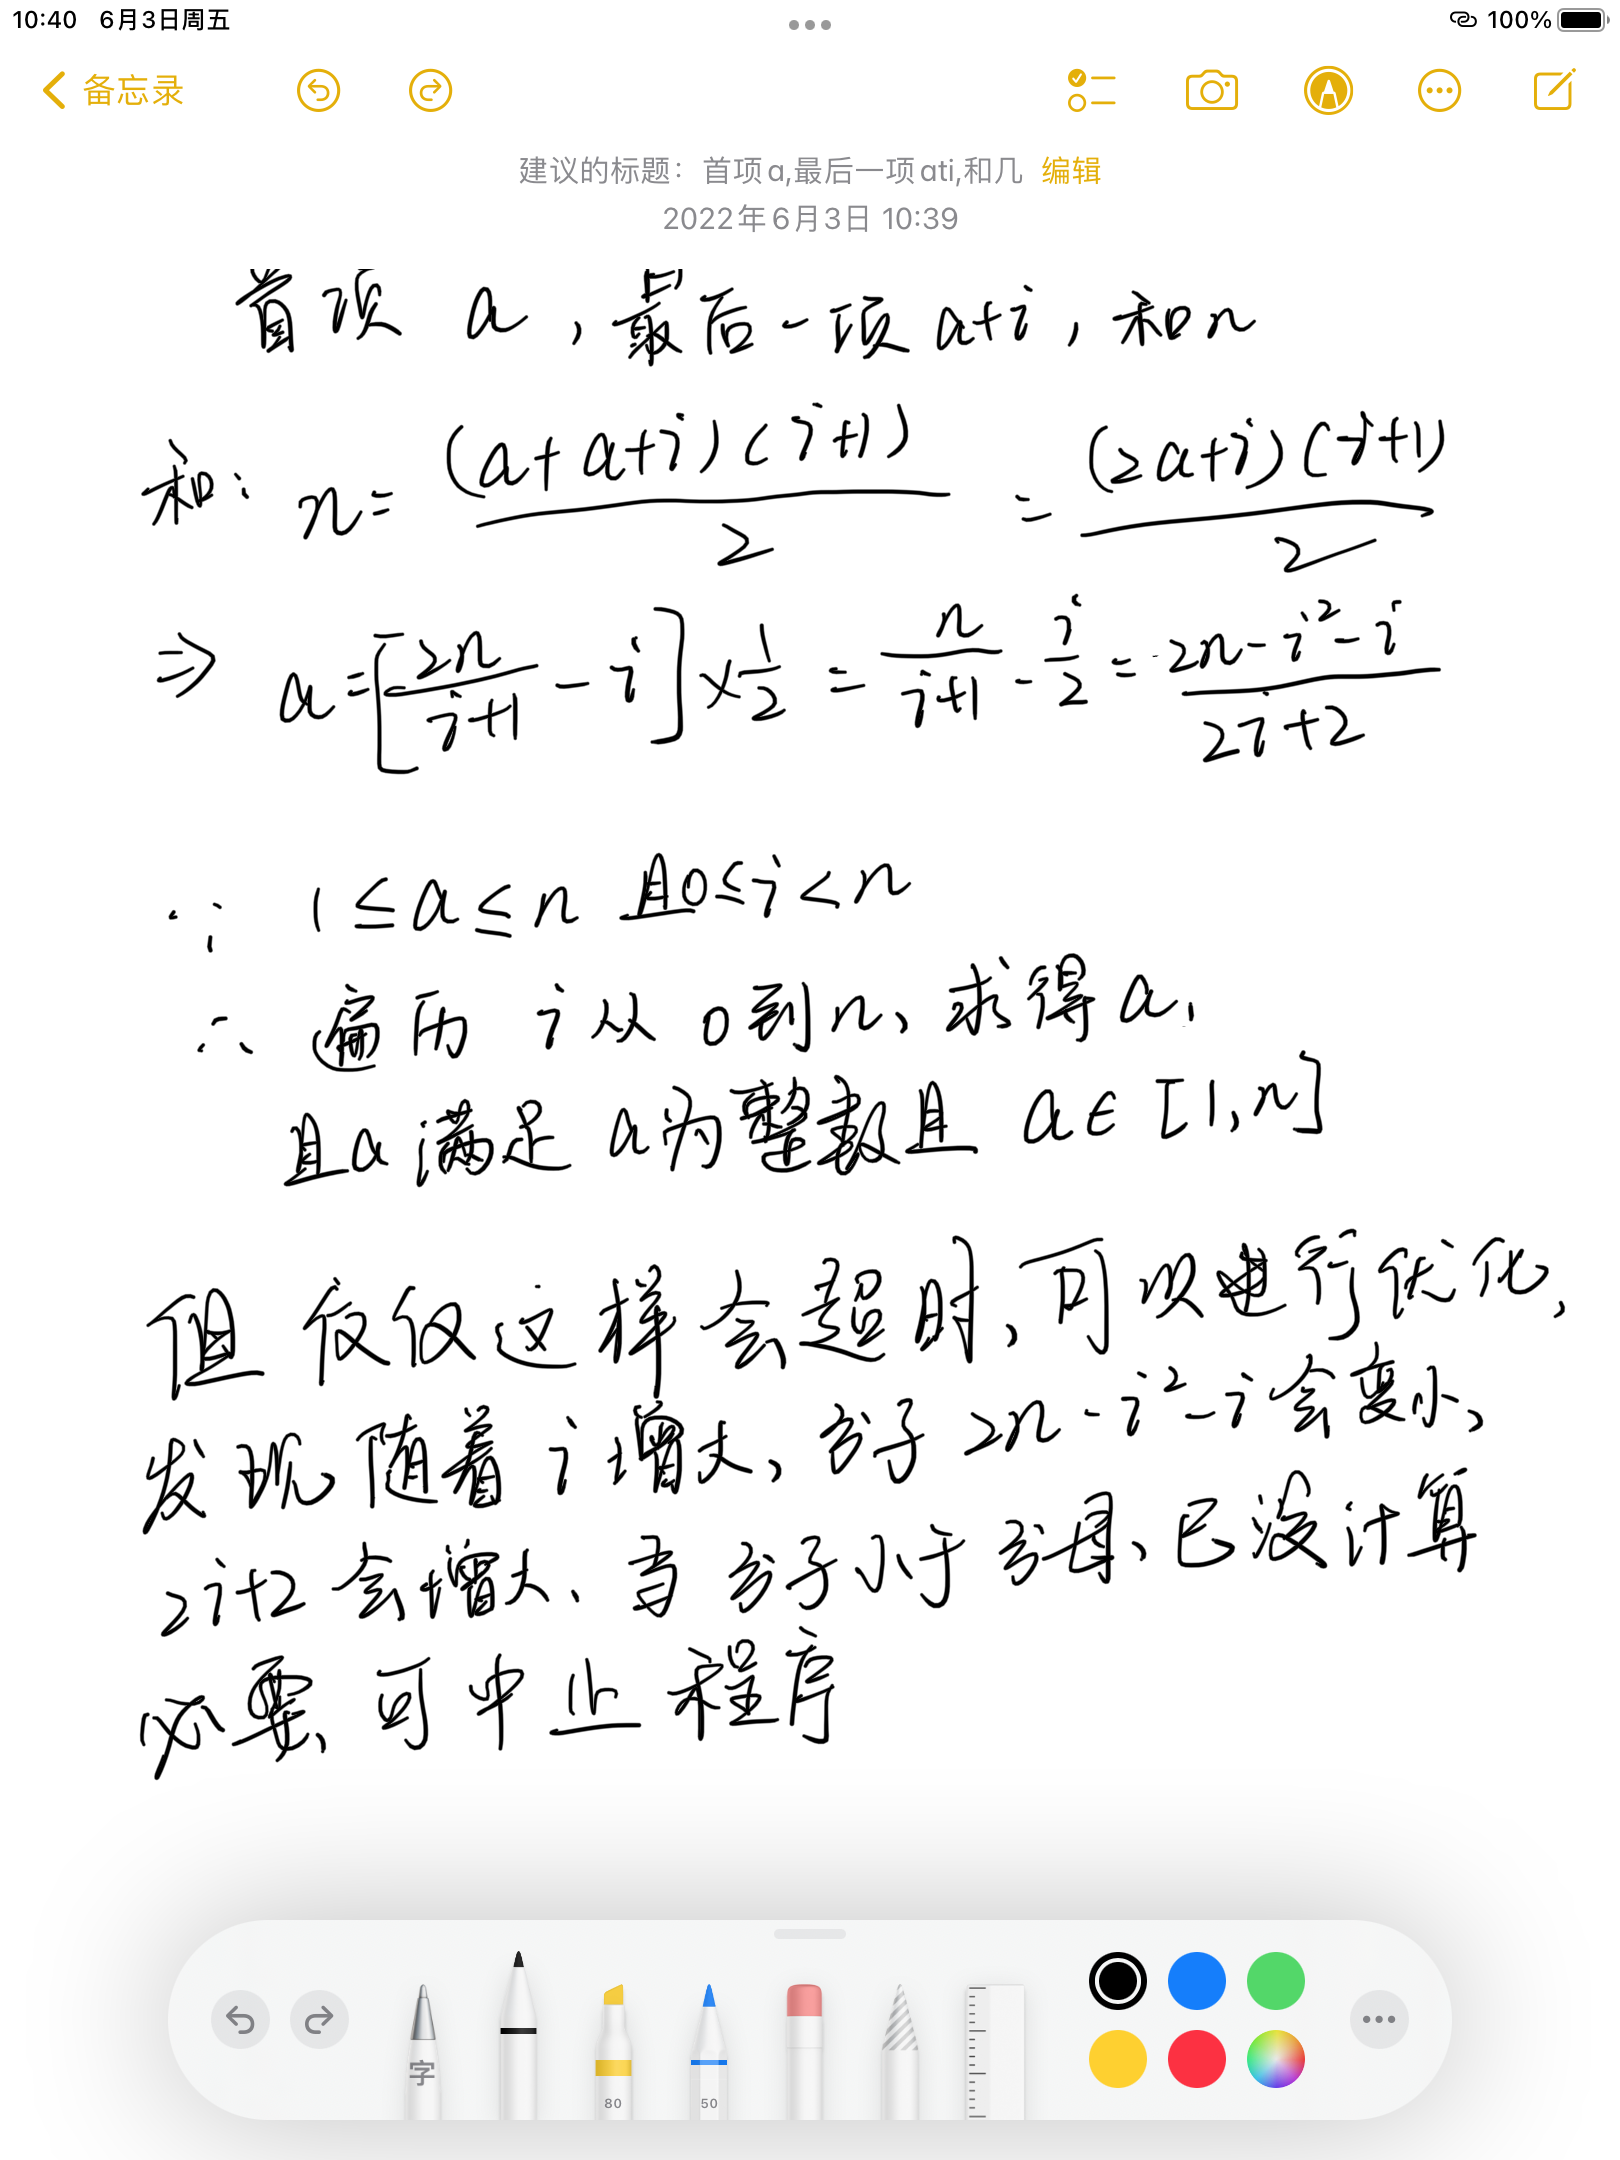 10:40 6月3日周五 100%
备忘录
建议的标题：首项a,最后一项ati,和几 编辑
2022年6月3日 10:39
首项 a，最后一项 a+i，和n
和：n= (a+a+i)(i+1)/2 = (2a+i)(i+1)/2
⇒ a=[2n/(i+1) - i]×1/2 = n/(i+1) - i/2 = (2n-i²-i)/(2i+2)
∵ 1≤a≤n 且0≤i<n
∴ 遍历 i从 0到n、求得a，
且a满足 a为整数且 a∈[1,n]
但仅仅这样会超时，可以进行优化，
发现随着i增大、分子 2n-i²-i会变小、
2i+2会增大、当分子小于分母、已没计算
必要、可中止程序
字
80
50